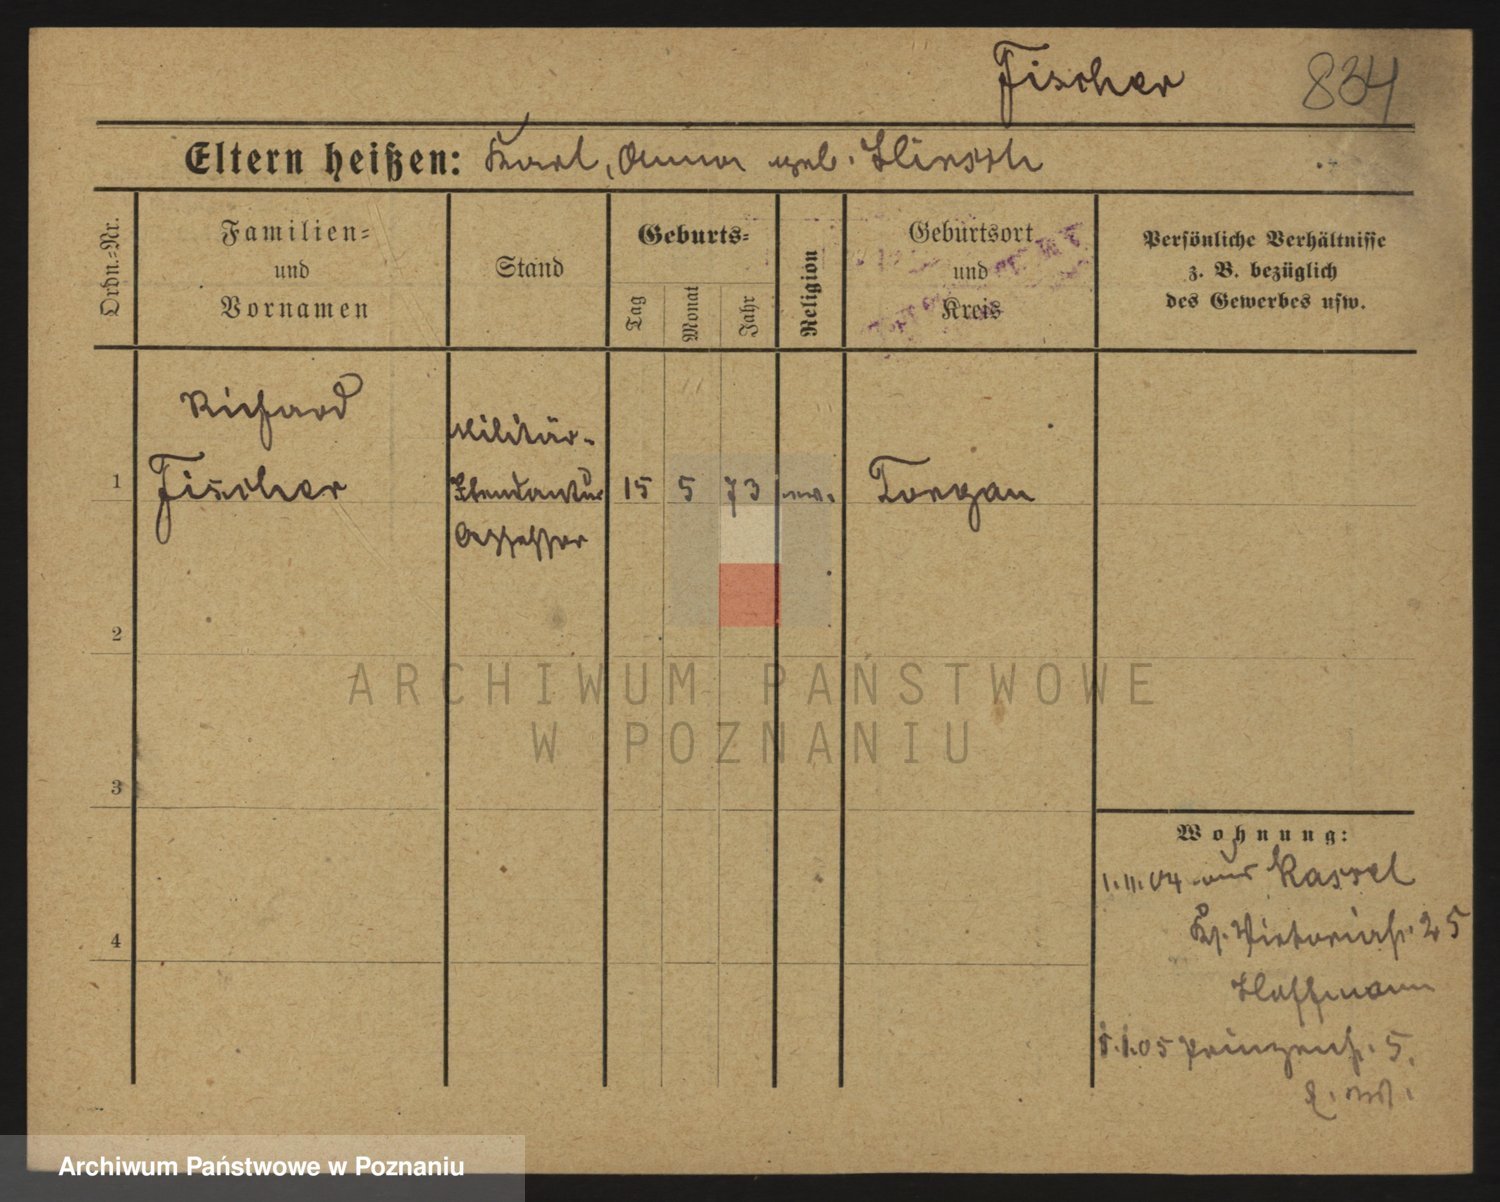 Fischer 834
Eltern heißen: Karl, Anna geb. Hirsch
Ordn.-Nr.
Familien-
und
Vornamen
Stand
Geburts-
Tag
Monat
Jahr
Religion
Geburtsort
und
Kreis
Persönliche Verhältnisse
z. B. bezüglich
des Gewerbes usw.
Richard
Militär-
1 Fischer 15 5 73 ev. Torgau
Assessor
2
3
4
Wohnung:
1.11.04 aus Kassel
Victoriastr. 25
Hoffmann
5.1.05 Prinzenstr. 5.
ARCHIWUM PAŃSTWOWE
W POZNANIU
Archiwum Państwowe w Poznaniu